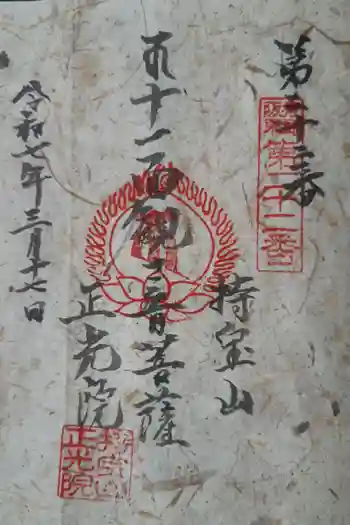 第二十二番
第二十二番
十一面観世音菩薩
持宝山
正光院
令和七年三月十七日
正光院